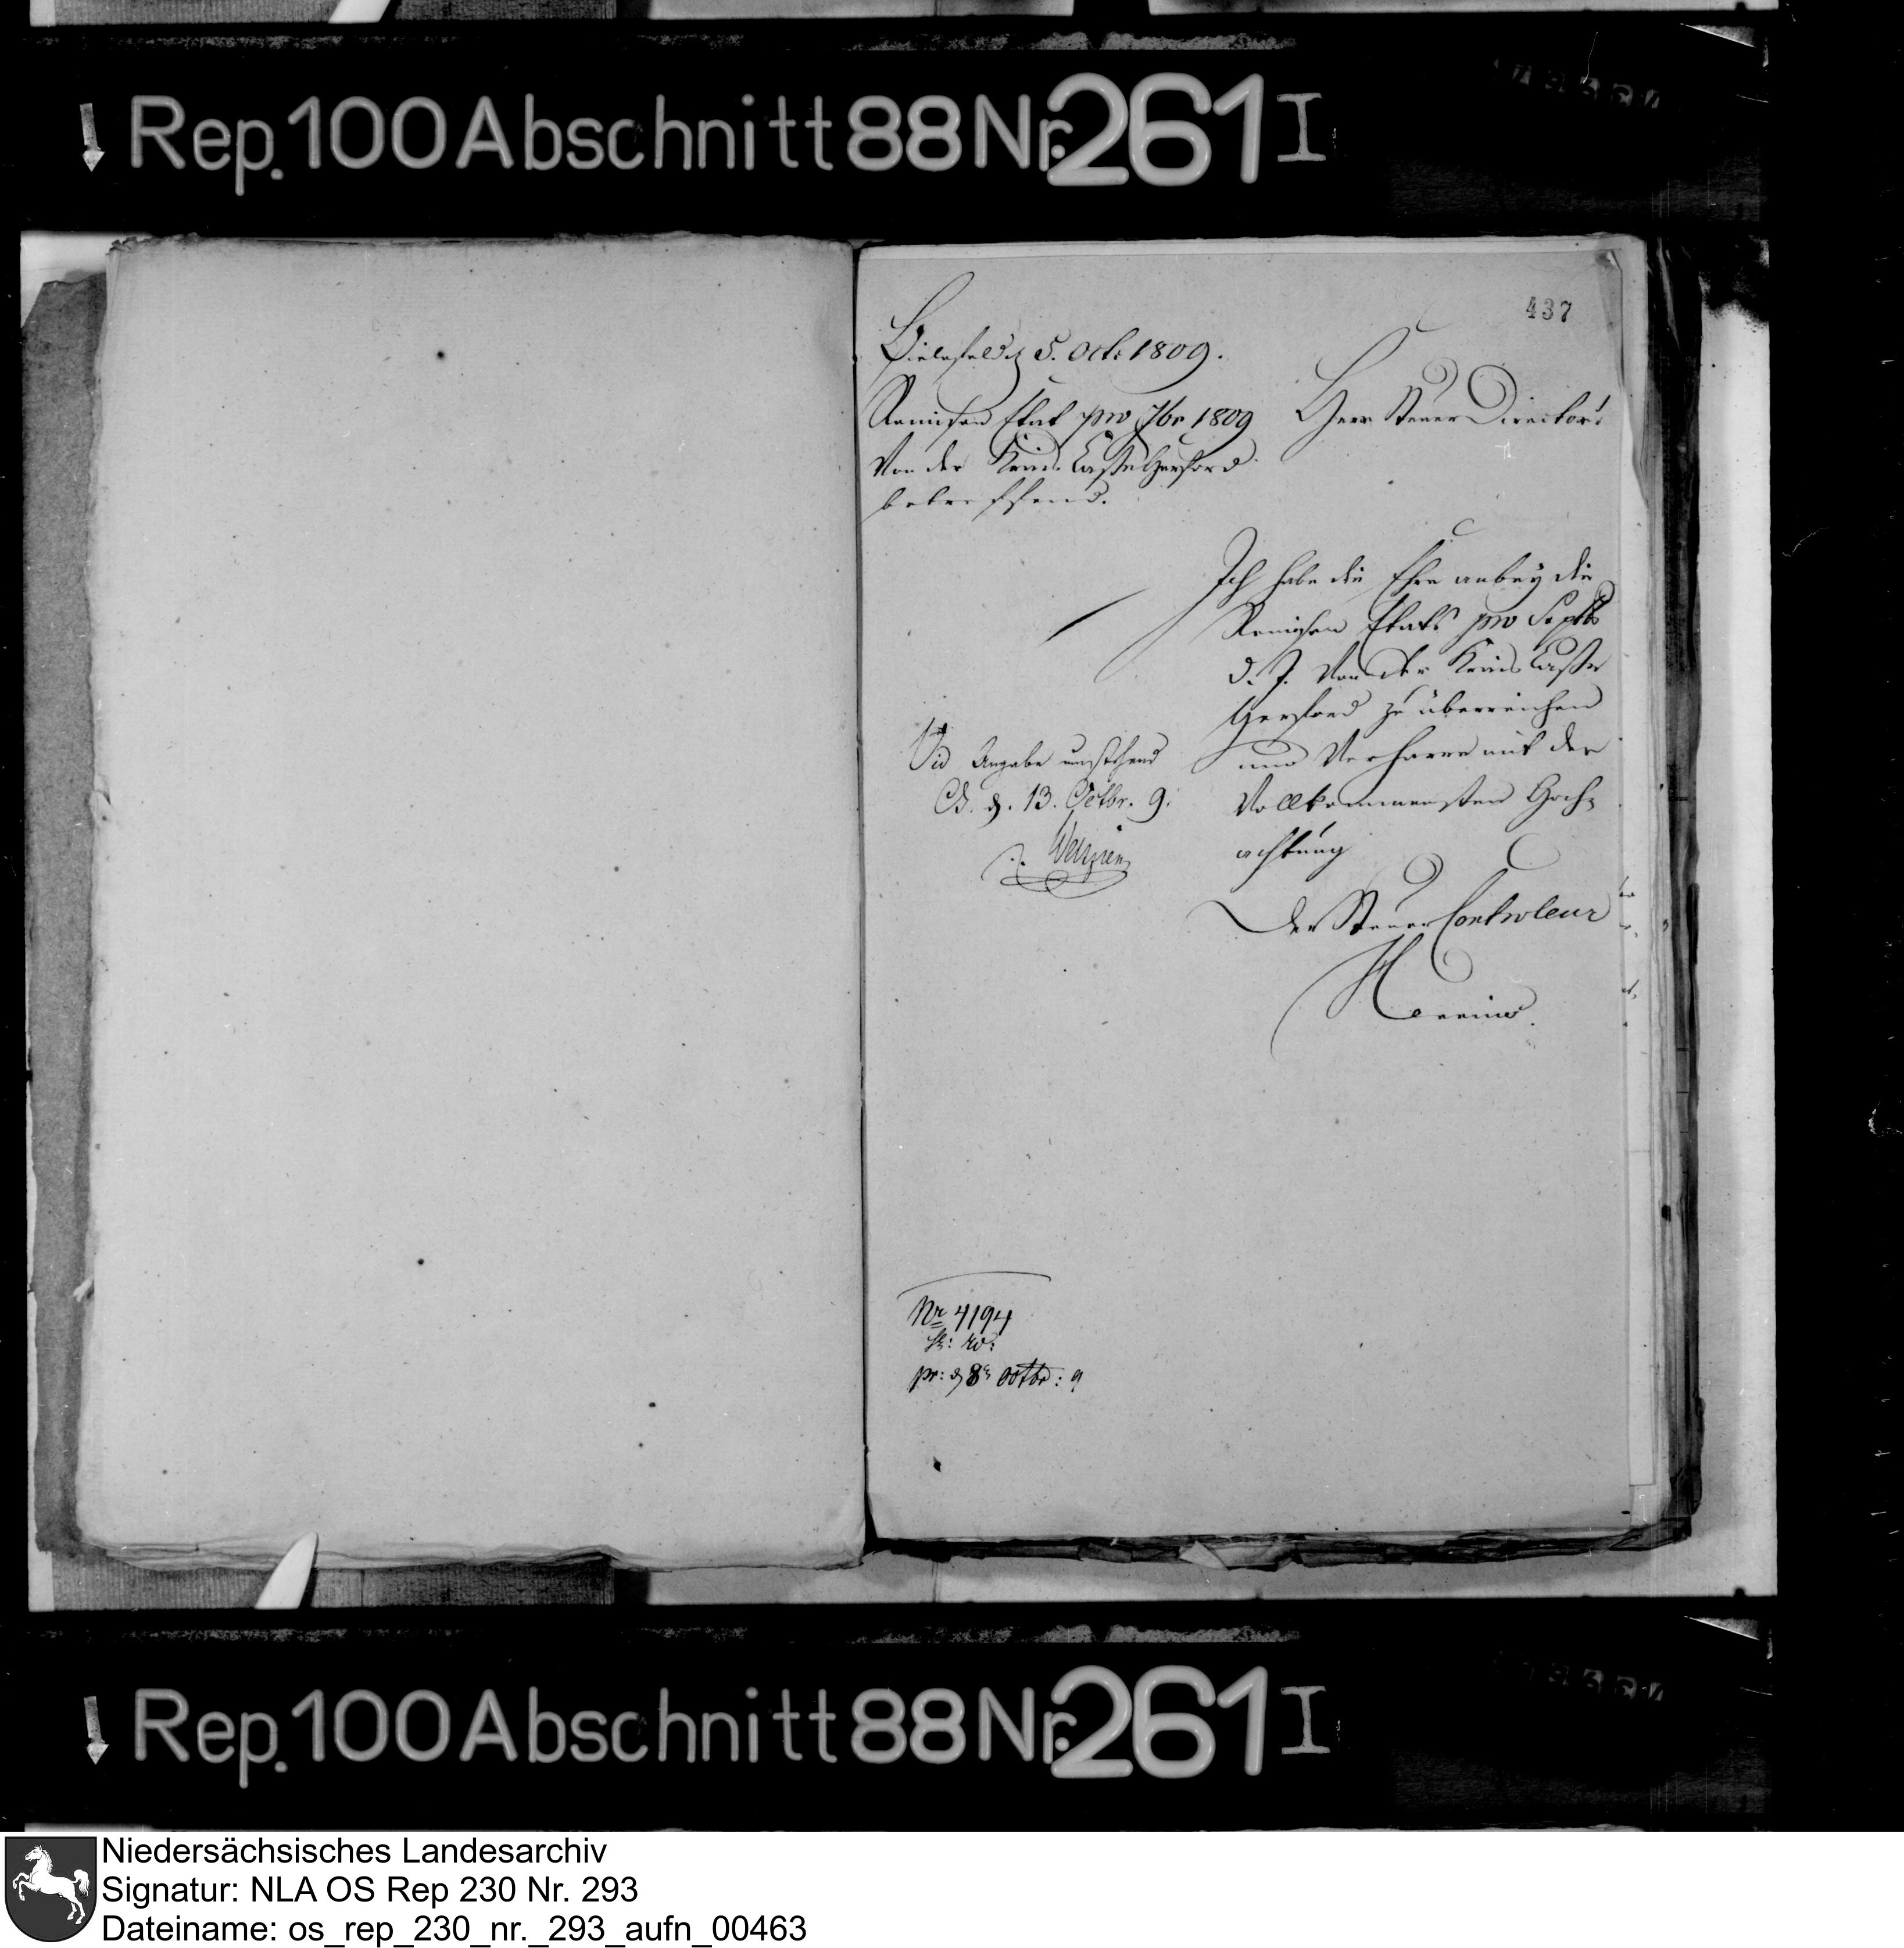 Rep. 100 Abschnitt 88 Nr. 261 I
437
Bielefeld d 5. Octr 1809.
Remissen Etat pro 7br 1809
Von der Kreis Casse Herford
betreffend.
Herr Steuer Director!
Ich habe die Ehre anbey die
Remissen Etats pro Septbr
d. J. Von der Kreis Casse
Herford zu überreichen
und Verharre mit der
Vollkommensten Hoch-
achtung
Der Steuer Controleur
Vid Angabe umstehend
d. 13. Octbr. 9.
Nr 4194
pr: d 8n Octbr: 9
Rep. 100 Abschnitt 88 Nr. 261 I
Niedersächsisches Landesarchiv
Signatur: NLA OS Rep 230 Nr. 293
Dateiname: os_rep_230_nr._293_aufn_00463